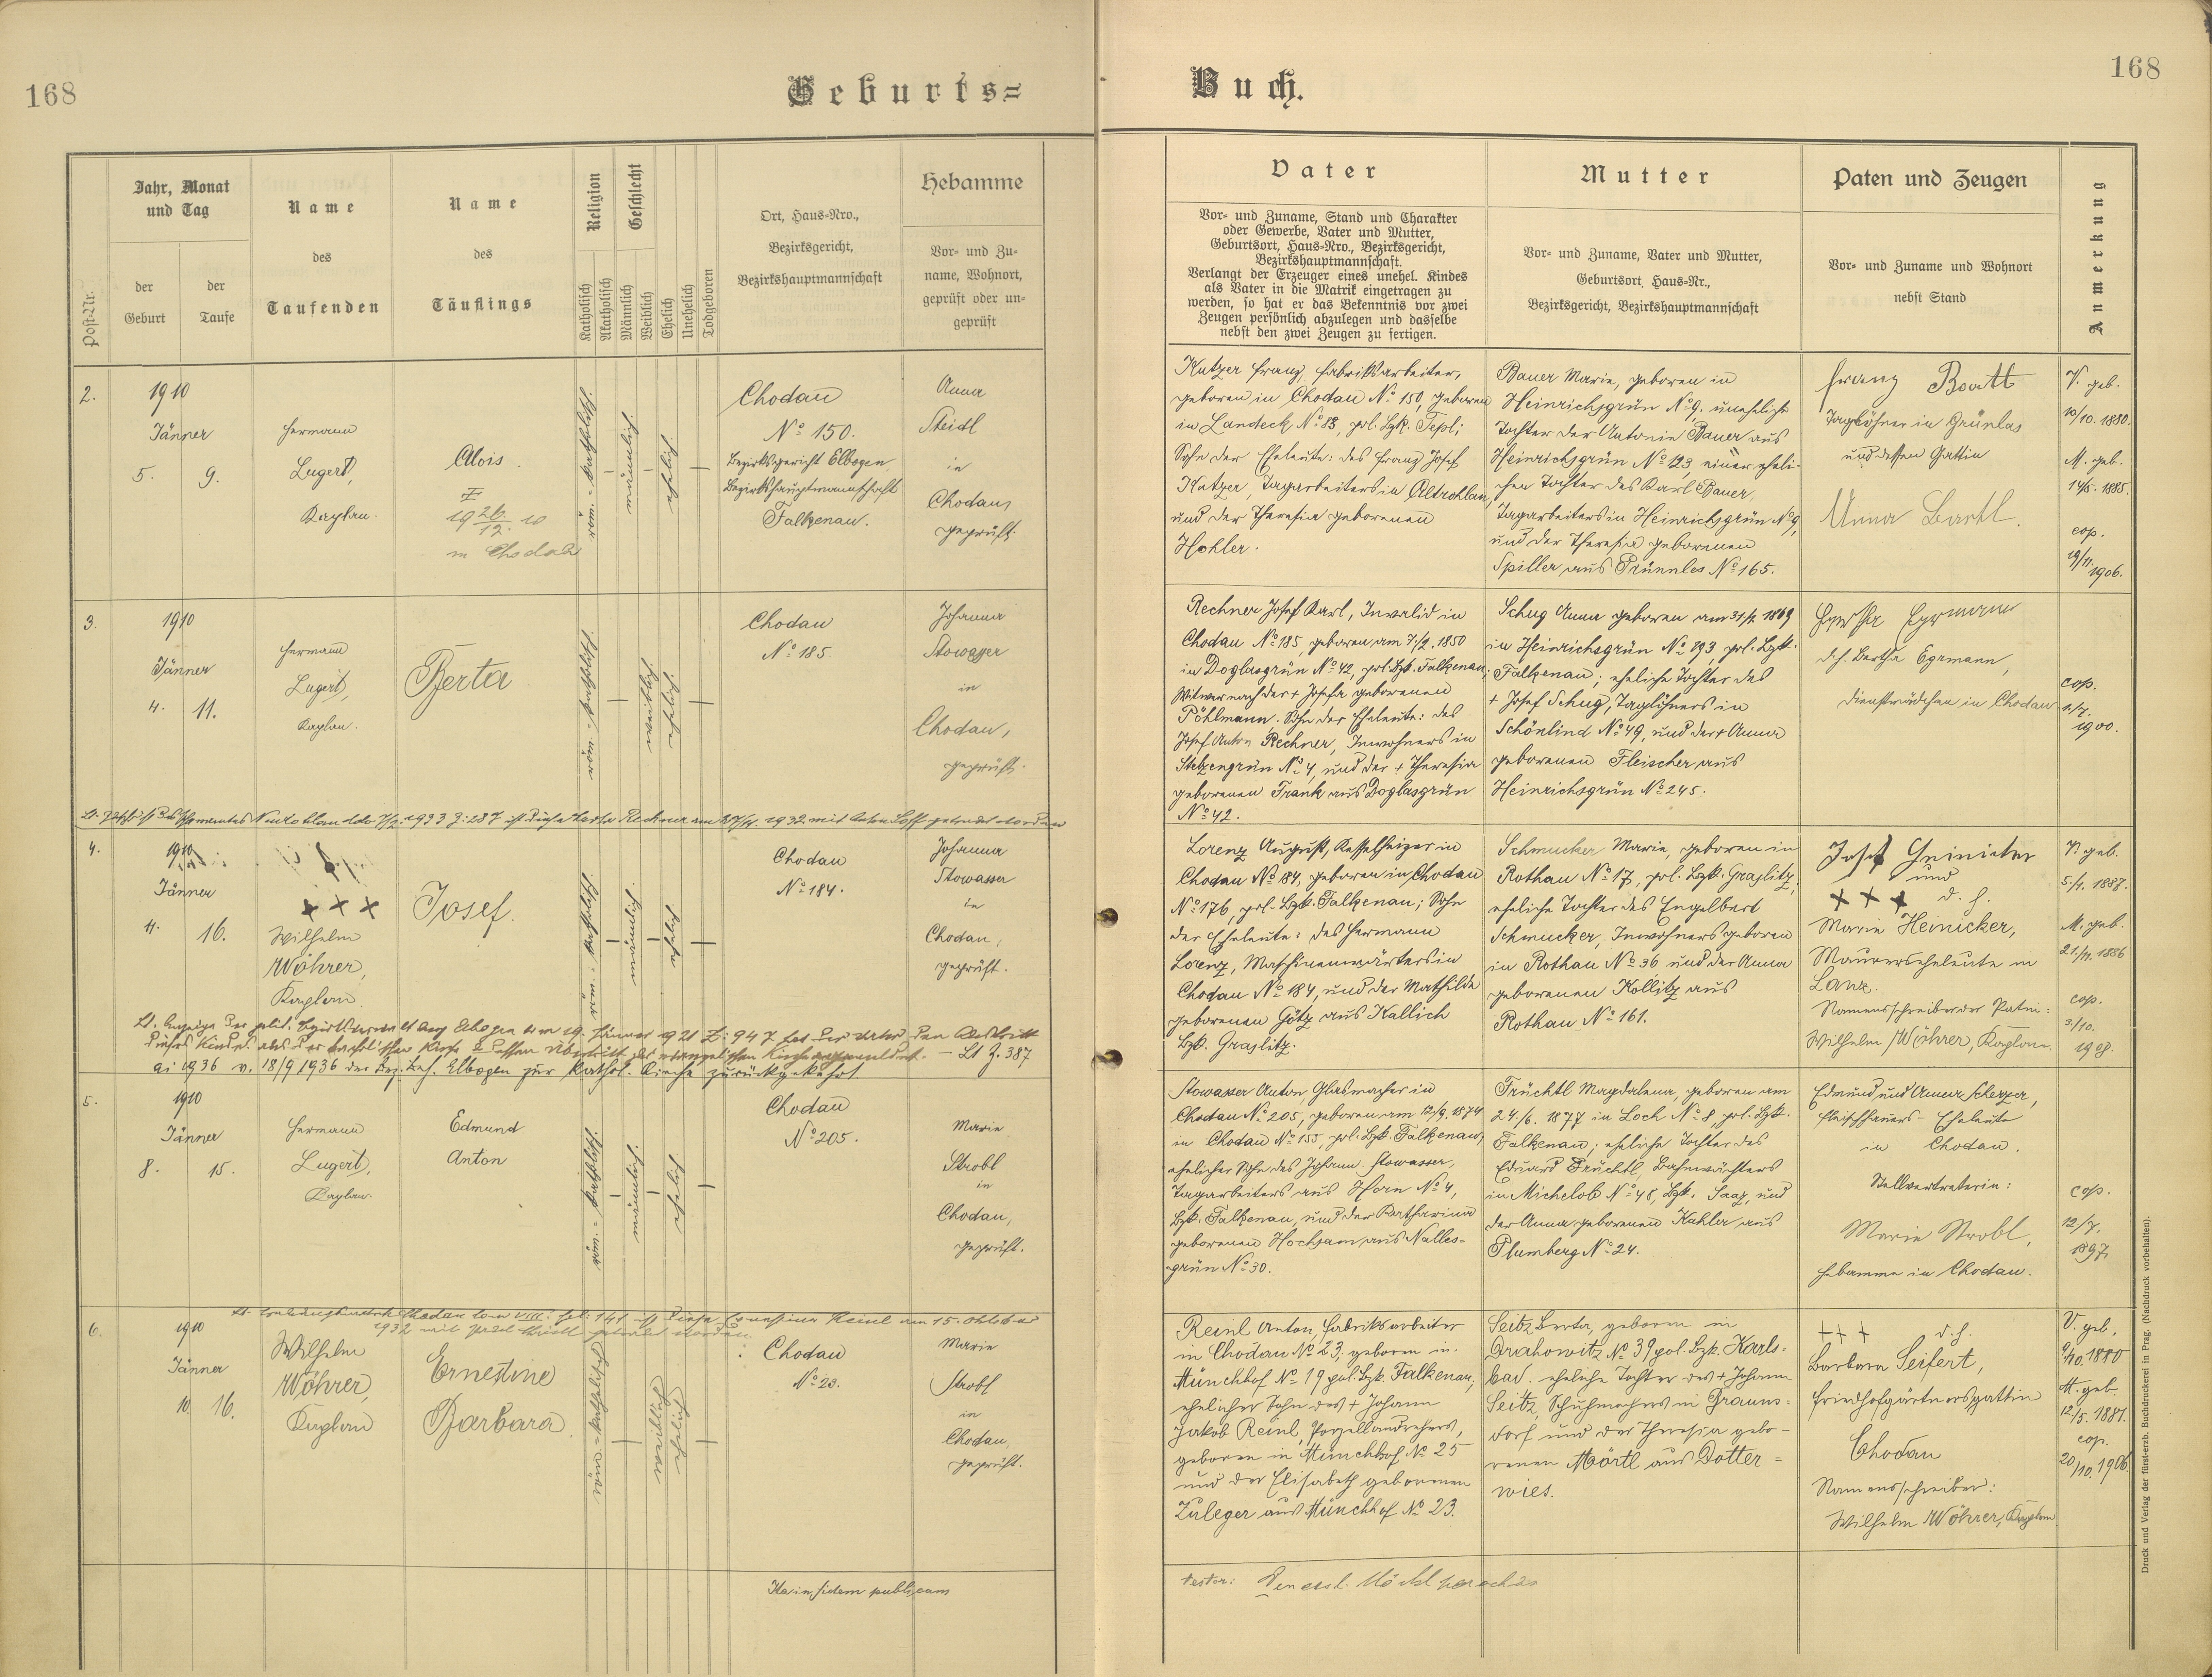 168
Geburts=
Post-Nr.
Jahr, Monat
und Tag
der
Geburt
der
Taufe
Name
des
Taufenden
Name
des
Täuflings
Religion
Katholisch
Akatholisch
Geschlecht
Männlich
Weiblich
Ehelich
Unehelich
Todgeboren
Ort, Haus-Nro.,
Bezirksgericht,
Bezirkshauptmannschaft
Hebamme
Vor- und Zu-
name, Wohnort,
geprüft oder un-
geprüft
2.
1910
Jänner
5. 9.
Hermann
Lugert,
Kaplan.
Alois.
in Chodau
röm.-katholisch.
männlich.
ehelich.
Chodau
Nº 150.
Bezirksgericht Elbogen
Bezirkshauptmannschaft
Falkenau.
Anna
Steidl
in
Chodau,
geprüft.
3.
1910
Jänner
4. 11.
Hermann
Lugert,
Kaplan.
Berta
röm.-katholisch.
weiblich.
ehelich.
Chodau
Nº 185.
Johanna
Stowasser
in
Chodau,
geprüft.
4.
1910
Jänner
4. 16.
+ + +
Wilhelm
Wöhrer,
Kaplan.
Josef.
röm.-katholisch.
männlich.
ehelich.
Chodau
Nº 184.
Johanna
Stowasser
in
Chodau,
geprüft.
ai 1936 v. 18/9 1936 der Bez. Beh. Elbogen zur kathol. Kirche zurückgekehrt
5.
1910
Jänner
8. 15.
Hermann
Lugert,
Kaplan.
Edmund
Anton
röm.-katholisch.
männlich.
ehelich.
Chodau
Nº 205.
Marie
Strobl
in
Chodau,
geprüft.
6.
1910
Jänner
10. 16.
Wilhelm
Wöhrer,
Kaplan
Ernestine
Barbara.
röm.-katholisch
weiblich
ehelich
Chodau
Nº 23.
Marie
Strobl
in
Chodau,
geprüft.
Ita in fidem publicam
Buch.
168
Vater
Vor- und Zuname, Stand und Charakter
oder Gewerbe, Vater und Mutter,
Geburtsort, Haus-Nro., Bezirksgericht,
Bezirkshauptmannschaft.
Verlangt der Erzeuger eines unehel. Kindes
als Vater in die Matrik eingetragen zu
werden, so hat er das Bekenntnis vor zwei
Zeugen persönlich abzulegen und dasselbe
nebst den zwei Zeugen zu fertigen.
Mutter
Vor- und Zuname, Vater und Mutter,
Geburtsort, Haus-Nr.,
Bezirksgericht, Bezirkshauptmannschaft
Paten und Zeugen
Vor- und Zuname und Wohnort
nebst Stand
Anmerkung
Kutzer Franz, Fabriksarbeiter,
geboren in Chodau Nº 150, geboren
in Landeck Nº 88, pol. Bzk. Tepl;
Sohn der Eheleute: des Franz Josef
Kutzer, Tagarbeiters in Altrohlau,
und der Theresia geborenen
Hohler.
Bauer Marie, geboren in
Heinrichsgrün Nº 9, uneheliche
Tochter der Antonie Bauer aus
Heinrichsgrün Nº 123, einer eheli-
chen Tochter des Karl Bauer,
Tagarbeiters in Heinrichsgrün Nº 9,
und der Theresia geborenen
Spiller aus Prünnles Nº 165.
Franz Bartl
Taglöhner in Grünlas
und dessen Gattin
Anna Bartl.
V. geb.
10/10. 1880.
M. geb.
14/5. 1885.
cop.
19/11. 1906.
Rechner Josef Karl, Invalid in
Chodau Nº 185, geboren am 7./2. 1850
in Doglasgrün Nº 42, pol. Bzk. Falkenau;
Witwer nach der + Josefa geborenen
Pöhlmann. Sohn der Eheleute: des
Josef Anton Rechner, Inwohners in
Stelzengrün Nº 4, und der + Theresia
geborenen Frank aus Doglasgrün
Nº 42.
Schug Anna geboren am 31/1. 1869
in Heinrichsgrün Nº 193, pol. Bzk.
Falkenau; eheliche Tochter des
+ Josef Schug, Taglöhners in
Schönlind Nº 49, und der + Anna
geborenen Fleischer aus
Heinrichsgrün Nº 245.
d. h. Bertha Egrmann,
Dienstmädchen in Chodau
cop.
1./7.
1900.
Lorenz August, Kesselheizer in
Chodau Nº 184, geboren in Chodau
Nº 176, pol. Bzk. Falkenau; Sohn
der Eheleute: des Hermann
Lorenz, Maschinenwärters in
Chodau Nº 184, und der Mathilde
geborenen Götz aus Kallich
Bzk. Graslitz.
Schmucker Marie, geboren in
Rothau Nº 17, pol. Bzk. Graslitz;
eheliche Tochter des Engelbert
Schmucker, Inwohners geboren
in Rothau Nº 36 und der Anna
geborenen Kollitz aus
Rothau Nº 161.
Josef Heinicker
und
+ + + d. h.
Marie Heinicker,
Maurerseheleute in
Lanz.
Namensschreiber der Patin:
Wilhelm Wöhrer, Kaplan.
V. geb.
5./1. 1887.
M. geb.
21/11. 1886
cop.
3/10.
1908.
Stowasser Anton, Glasmacher in
Chodau Nº 205, geboren am 12./9. 1874
in Chodau Nº 155, pol. Bzk. Falkenau;
ehelicher Sohn des Johann Stowasser,
Tagarbeiters aus Horn Nº 4,
Bzk. Falkenau, und der Katharina
geborenen Hochsam aus Nalles-
grün Nº 30.
Früchtl Magdalena, geboren am
24./6. 1877 in Loch Nº 8, pol. Bzk.
Falkenau; eheliche Tochter des
Eduard Früchtl, Bahnwächters
in Michelob Nº 48, Bzk. Saaz, und
der Anna geborenen Kahler aus
Plumberg Nº 24.
Edmund und Anna Scherzer,
Fleischhauers-Eheleute
in Chodau.
Stellvertreterin:
Marie Strobl,
Hebamme in Chodau.
cop.
12/7.
1897.
Reinl Anton, Fabriksarbeiter
in Chodau Nº 23, geboren in
Münchhof Nº 19 pol. Bzk. Falkenau,
ehelicher Sohn des + Johann
Jakob Reinl, Porzellandrehers,
geboren in Münchhof Nº 25
und der Elisabeth geborenen
Zuleger aus Münchhof Nº 23.
Seitz Berta, geboren in
Drahowitz Nº 39 pol. Bzk. Karls-
bad. eheliche Tochter des + Johann
Seitz, Schuhmachers in Grauns-
dorf und der Theresia gebo-
renen Mörtl aus Dotter=
wies.
+ + + d. h.
Barbara Seifert,
Friedhofgärtnersgattin
Chodau
Namensschreiber:
Wilhelm Wöhrer, Kaplan
V. geb.
M. geb.
12/5. 1881.
cop.
20/10. 1906.
Druck und Verlag der fürst-erzb. Buchdruckerei in Prag. (Nachdruck vorbehalten).